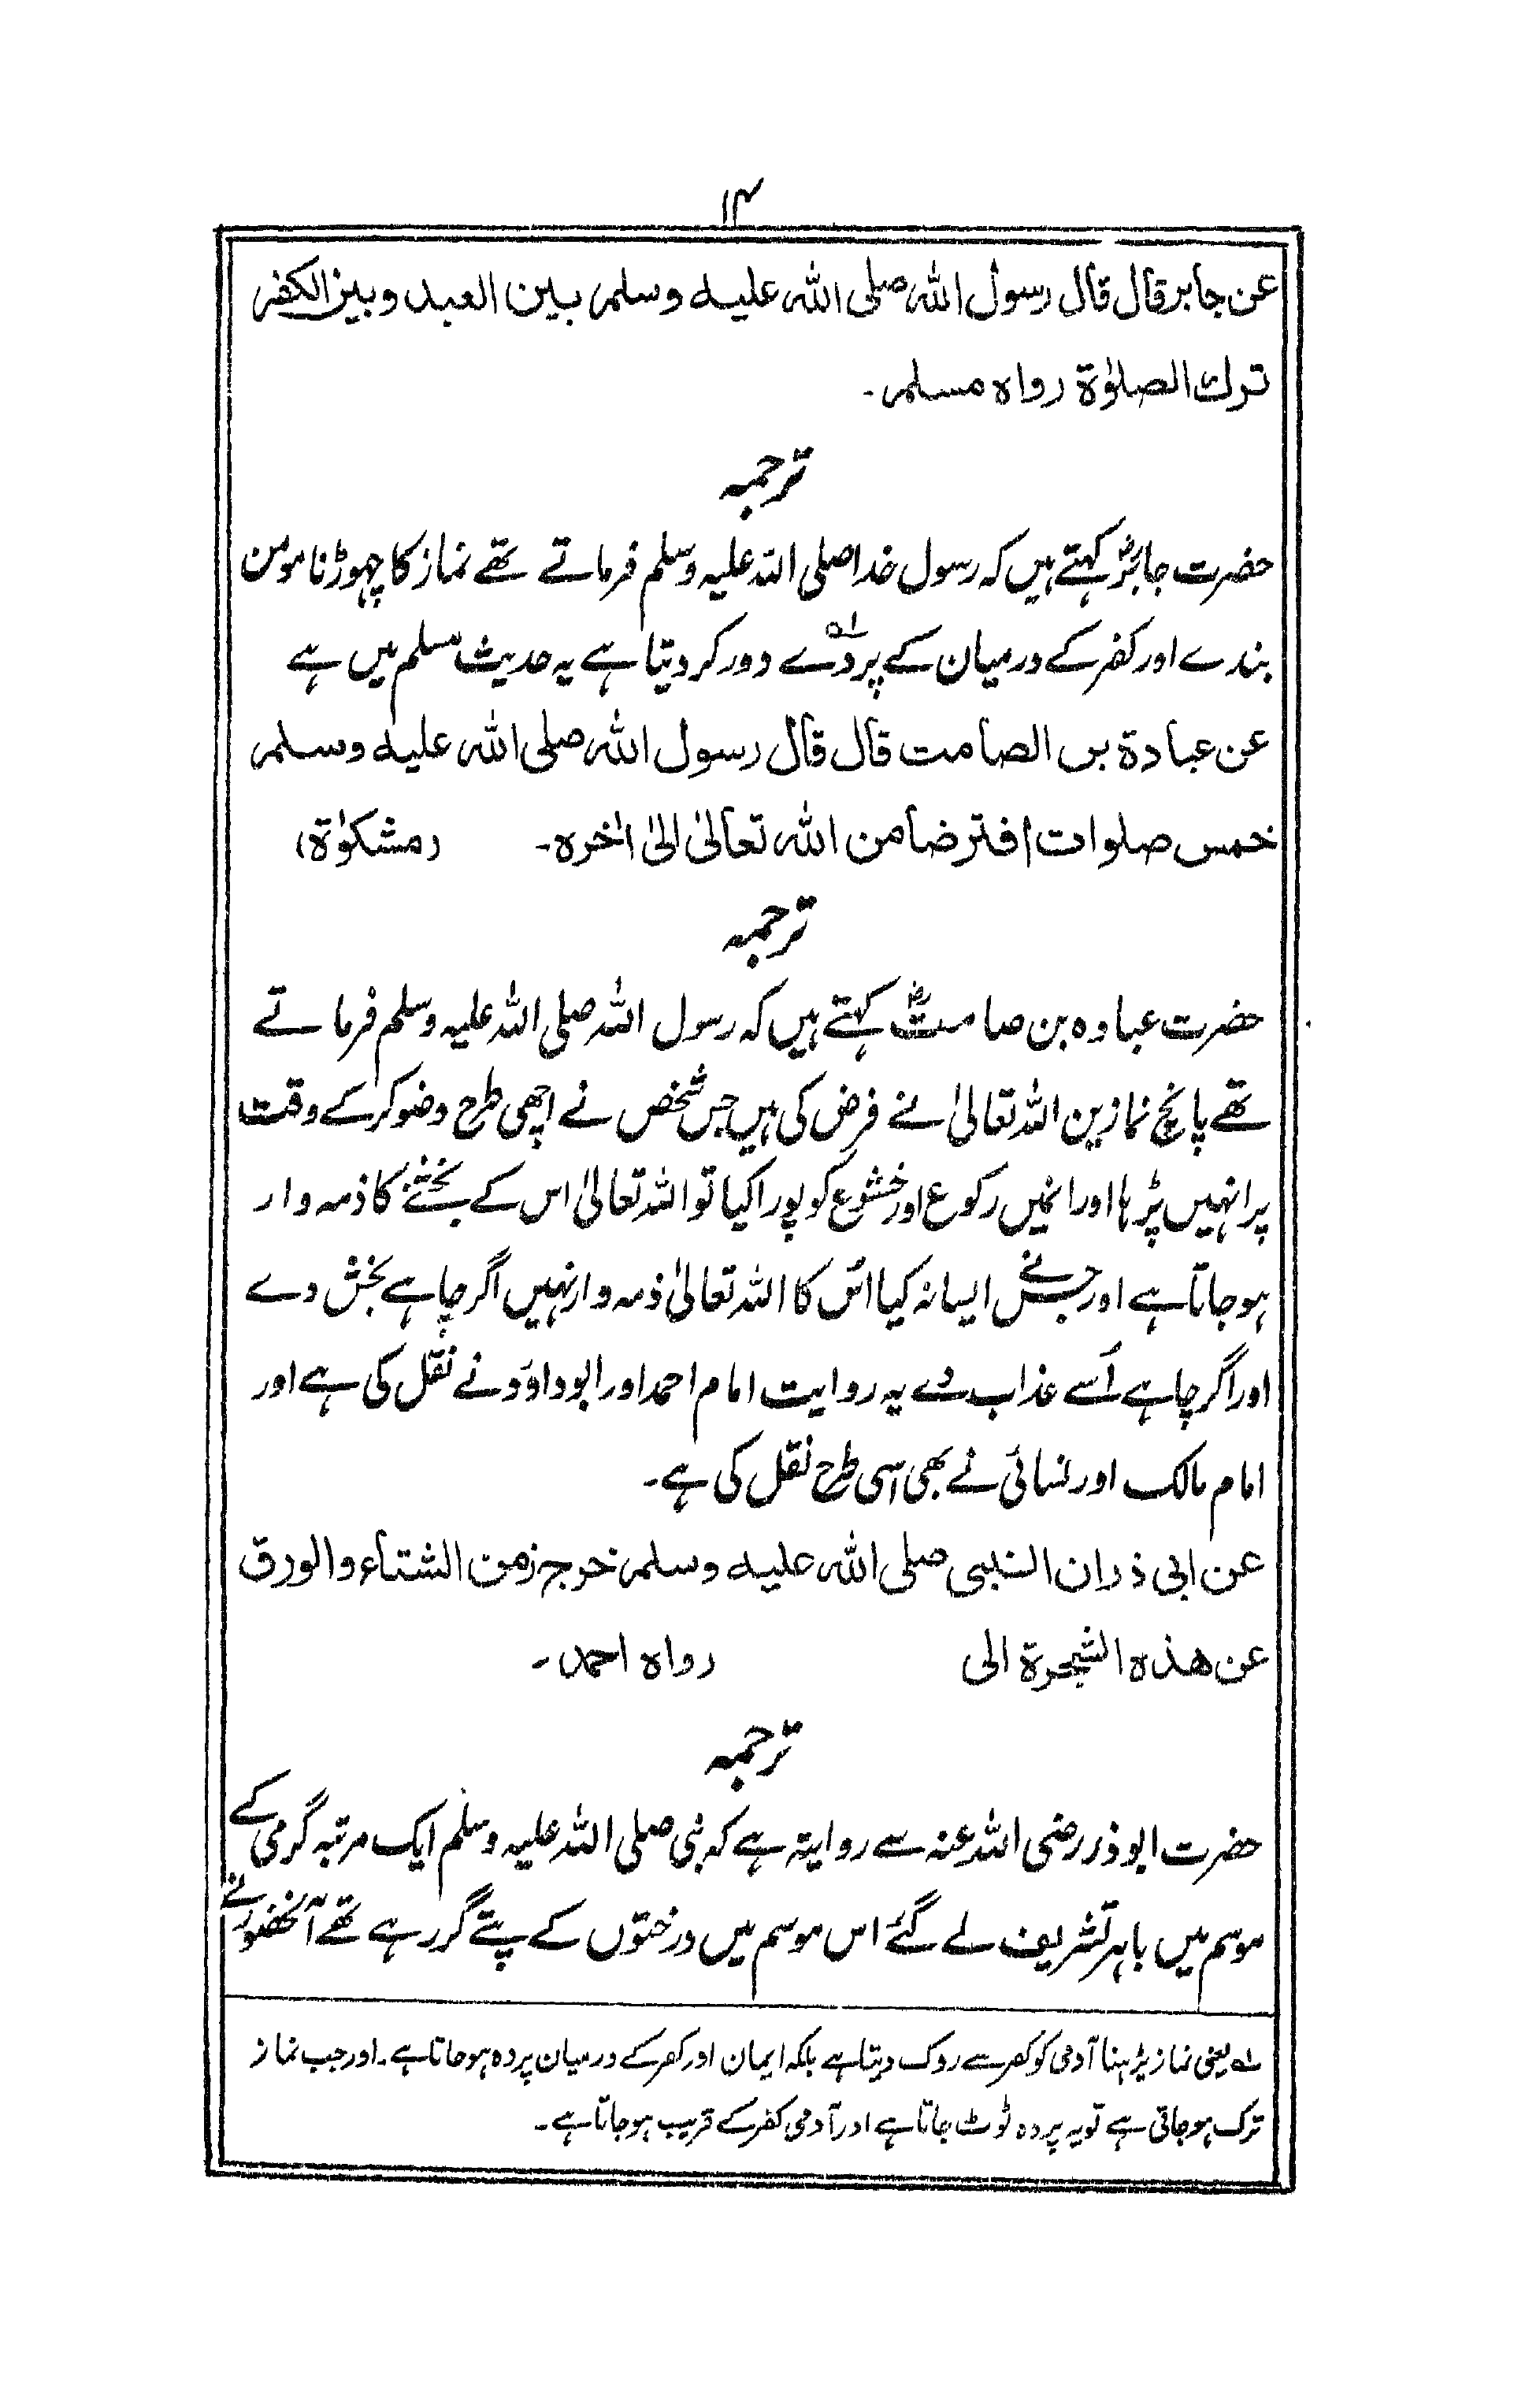 ۱۴
عن جابر قال قال رسول الله صلى الله عليه وسلم بين العبد وبين الكفر
ترك الصلوٰة رواه مسلم۔
ترجمہ
حضرت جابرؓ کہتے ہیں کہ رسول خدا صلی اللہ علیہ وسلم فرماتے تھے نماز کا چھوڑنا مومن
بندے اور کفر کے درمیان کے پردے۱؎ دور کر دیتا ہے یہ حدیث مسلم میں ہے
عن عبادة بن الصامت قال قال رسول الله صلى الله عليه وسلم
خمس صلوات افترضا من الله تعالىٰ الىٰ اٰخره۔ (مشكوٰة)
ترجمہ
حضرت عبادہ بن صامتؓ کہتے ہیں کہ رسول اللہ صلی اللہ علیہ وسلم فرماتے
تھے پانچ نمازین اللہ تعالیٰ نے فرض کی ہیں جس شخص نے اچھی طرح وضو کر کے وقت
پر انہیں پڑہا اور انمیں رکوع اور خشوع کو پورا کیا تو اللہ تعالیٰ اس کے بخشنے کا ذمہ وار
ہو جاتا ہے اور جس نے ایسا نہ کیا اُس کا اللہ تعالیٰ ذمہ وار نہیں اگر چاہے بخش دے
اور اگر چاہے اُسے عذاب دے یہ روایت امام احمد اور ابوداؤد نے نقل کی ہے اور
امام مالک اور نسائی نے بھی اسی طرح نقل کی ہے۔
عن ابی ذر ان النبی صلى الله عليه وسلم خرج زمن الشتاء والورق
عن هذه الشجرة الى رواه احمد۔
ترجمہ
حضرت ابوذر رضی اللہ عنہ سے روایتہ ہے کہ نبی صلی اللہ علیہ وسلم ایک مرتبہ گرمی کے
موسم میں باہر تشریف لے گئے اس موسم میں درختوں کے پتے گر رہے تھے آنحضورؐ نے
۱؎ یعنی نماز پڑہنا آدمی کو کفر سے روک دیتا ہے بلکہ ایمان اور کفر کے درمیان پردہ ہو جاتا ہے۔ اور جب نماز
ترک ہو جاتی ہے تو یہ پردہ ٹوٹ جاتا ہے اور آدمی کفر کے قریب ہو جاتا ہے۔